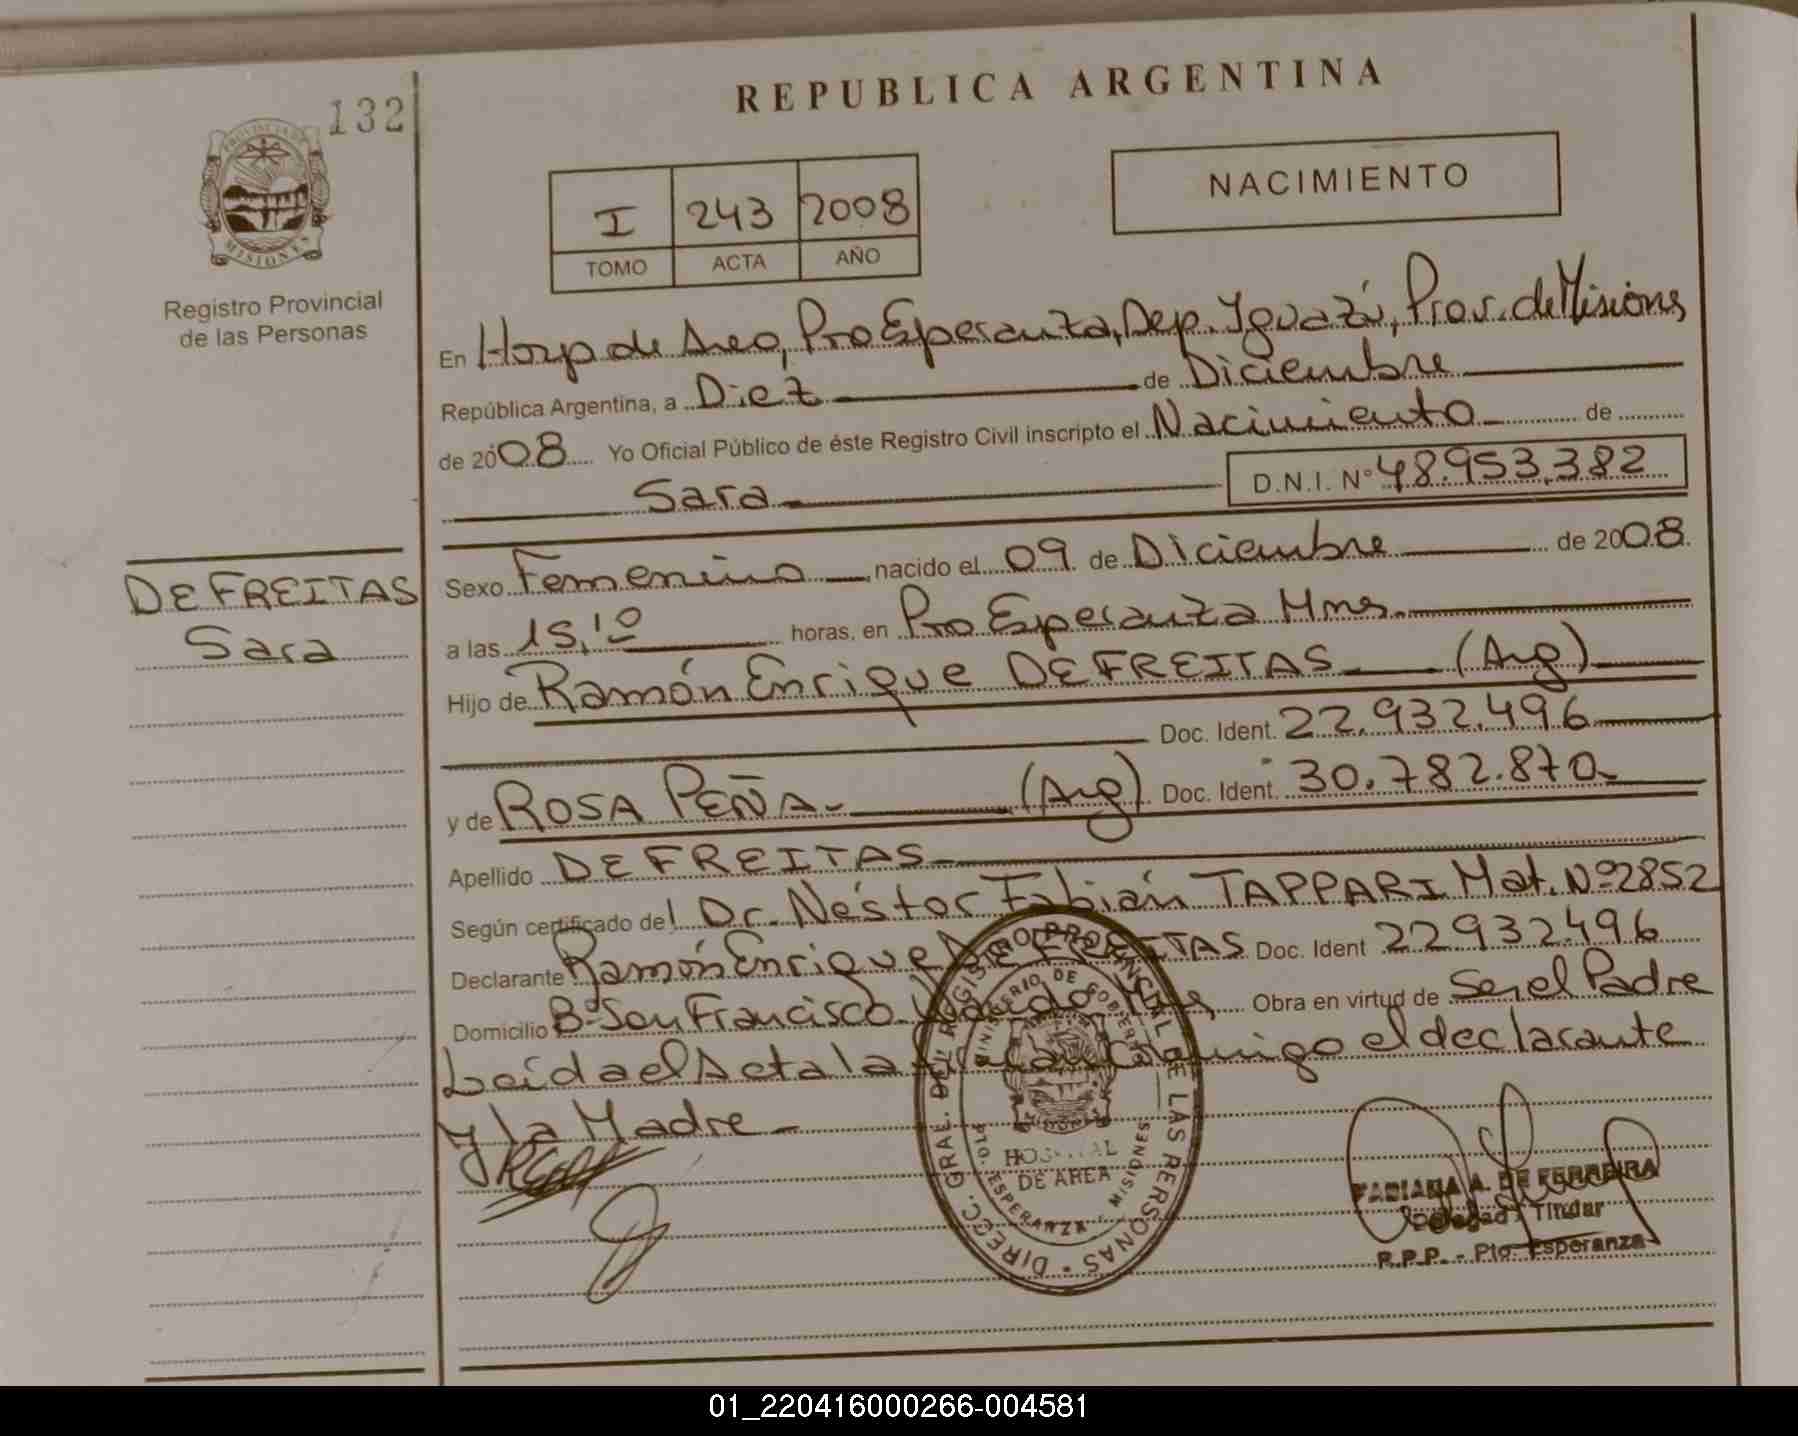 132
REPUBLICA ARGENTINA
PROVINCIA DE
MISIONES
Registro Provincial
de las Personas
I 243 2008
TOMO ACTA AÑO
NACIMIENTO
En Hosp de Area, Pto Esperanza, Dep. Iguazú, Prov. de Misiones
República Argentina, a Diez de Diciembre
de 2008 Yo Oficial Público de éste Registro Civil inscripto el Nacimiento de
Sara D.N.I. Nº 48.953.382
DE FREITAS
Sara
Sexo Femenino nacido el 09 de Diciembre de 2008
a las 15,10 horas, en Pto Esperanza Mnes.
Hijo de Ramón Enrique DE FREITAS (Arg)
Doc. Ident. 22.932.496
y de ROSA PEÑA (Arg) Doc. Ident. 30.782.870
Apellido DE FREITAS
Según certificado del Dr. Néstor Fabián TAPPARI Mat. Nº 2852
Declarante Ramón Enrique DE FREITAS Doc. Ident 22932496
Domicilio Bº San Francisco Obra en virtud de Ser el Padre
Leída el Acta la el declarante
y la Madre
DIRECC. GRAL. DEL REGISTRO PROVINCIAL DE LAS PERSONAS
MINISTERIO DE GOBIERNO
HOSPITAL
DE AREA
PTO. ESPERANZA - MISIONES
FABIANA A. DE FERREIRA
Delegada Titular
R.P.P. - Pto. Esperanza
01_220416000266-004581